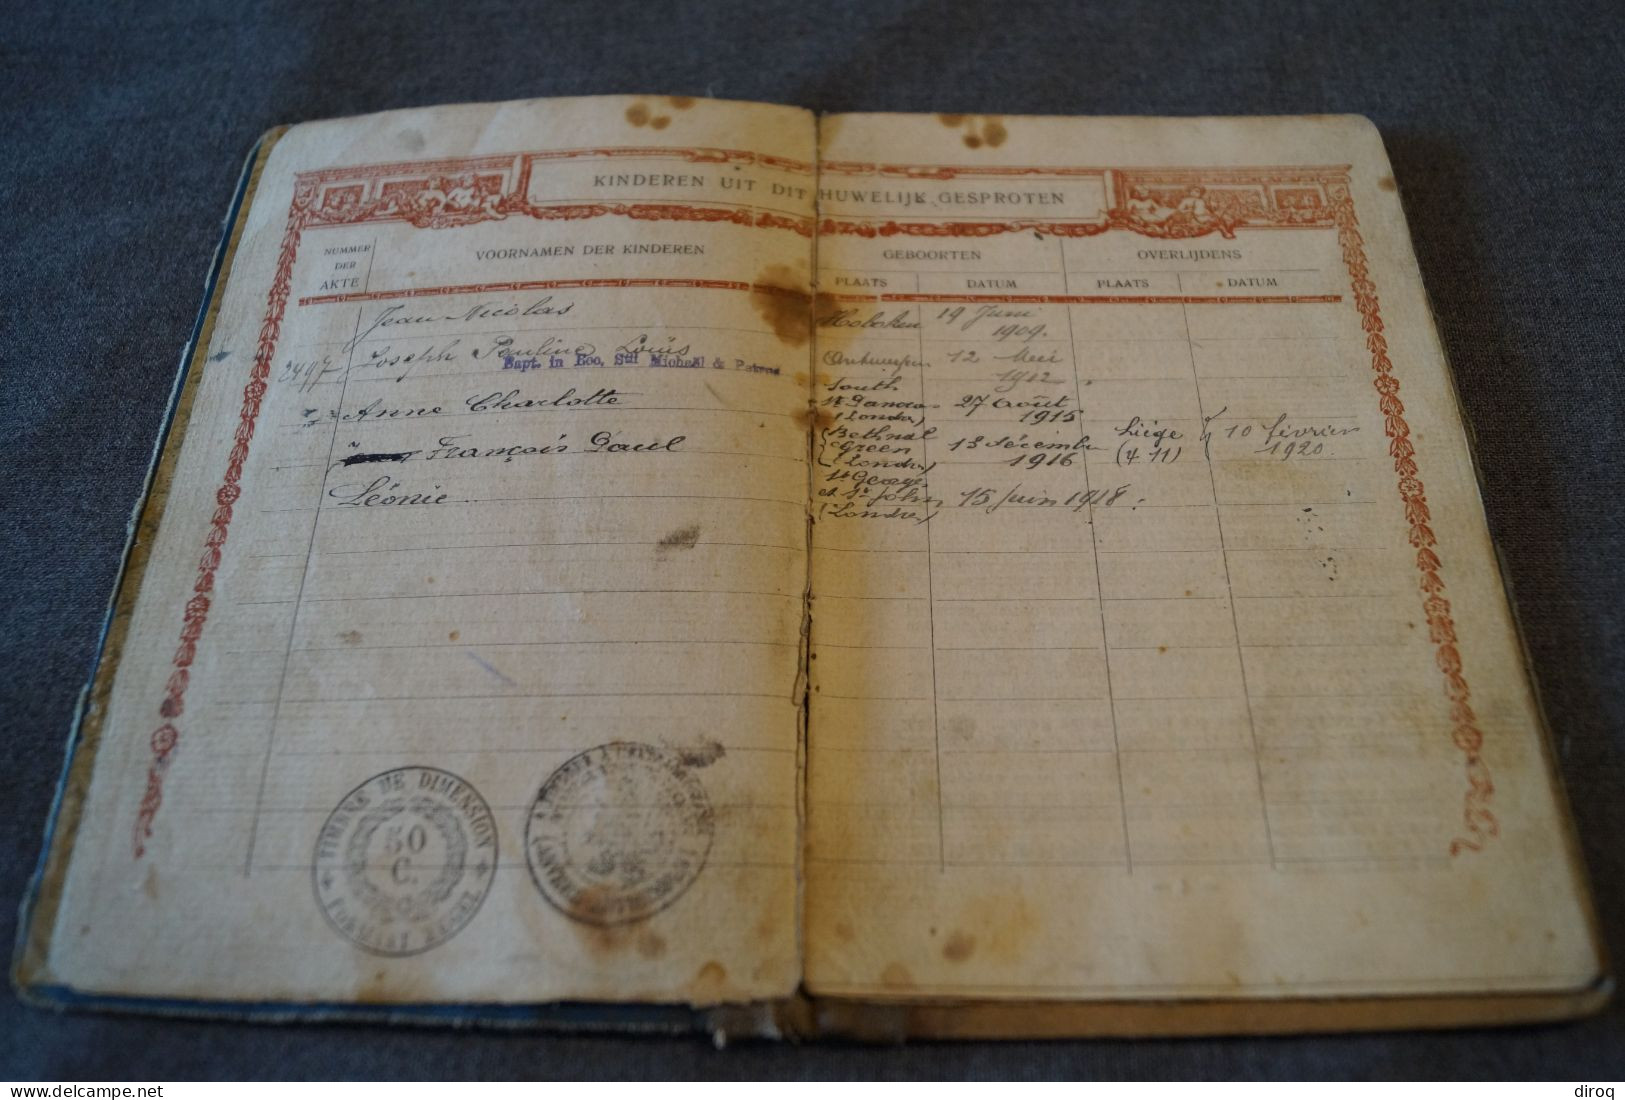 KINDEREN UIT DIT HUWELIJK GESPROTEN
NUMMER DER AKTE
VOORNAMEN DER KINDEREN
GEBOORTEN
OVERLIJDENS
PLAATS DATUM PLAATS DATUM
Jean Nicolas Hoboken 19 Juni 1909.
2497 Joseph Pauline Louis Antwerpen 12 Mei 1912
Bapt. in Ecc. Stl Michaël & Petrus
Anne Charlotte South St Pancras (Londres) 27 Août 1915
François Paul (Bethnal Green (Londres) 13 décembre 1916 Liége (4 11) 10 février 1920.
Léonie St George et St John (Londres) 15 juin 1918.
TIMBRE DE DIMENSION
50
C.
FORMAT
diroq